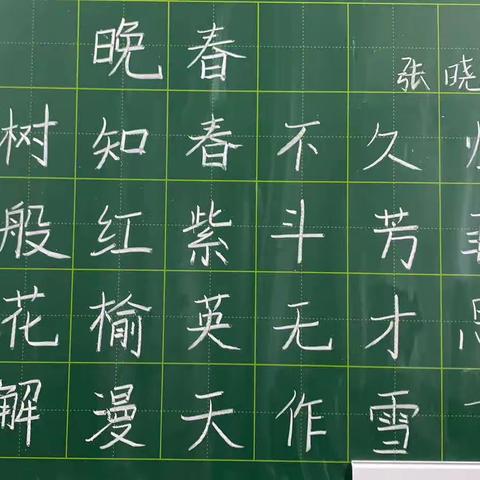 晚春
张晓
树知春不久
般红紫斗芳
花榆英无才
解漫天作雪